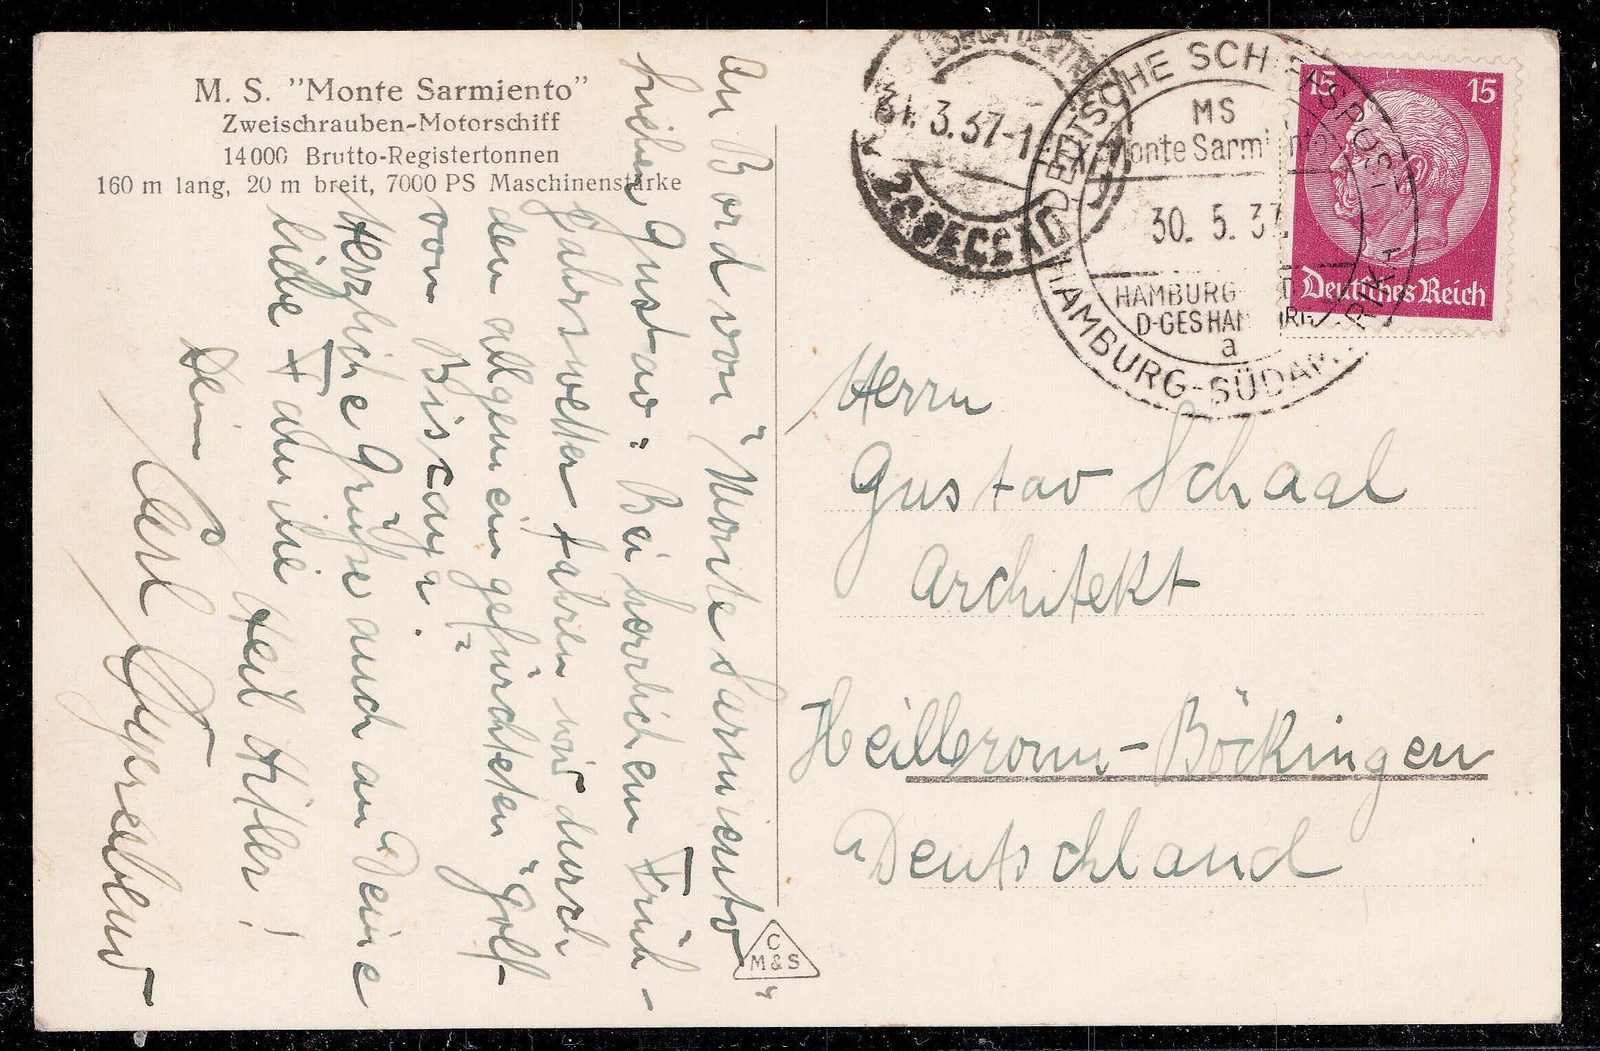 M. S. "Monte Sarmiento"
Zweischrauben-Motorschiff
14000 Brutto-Registertonnen
160 m lang, 20 m breit, 7000 PS Maschinenstärke
An Bord von "Monte Sarmiento"
Gustav: Bei herrlichem Früh-
jahrswetter fahren wir durch
den allgemein gefürchteten "Golf
von Biscaya".
Herzliche Grüße auch an Deine
liebe Familie Heil Hitler!
Dein Carl
C
M&S
31.3.37-1
DEUTSCHE SCHIFFSPOST
MS
Monte Sarmiento
30. 5. 37
HAMBURG
D-GES HAMBURG
a
HAMBURG-SÜDAMERIKA
15 15
Deutsches Reich
Herrn
Gustav Schaal
Architekt
Heilbronn-Böckingen
Deutschland